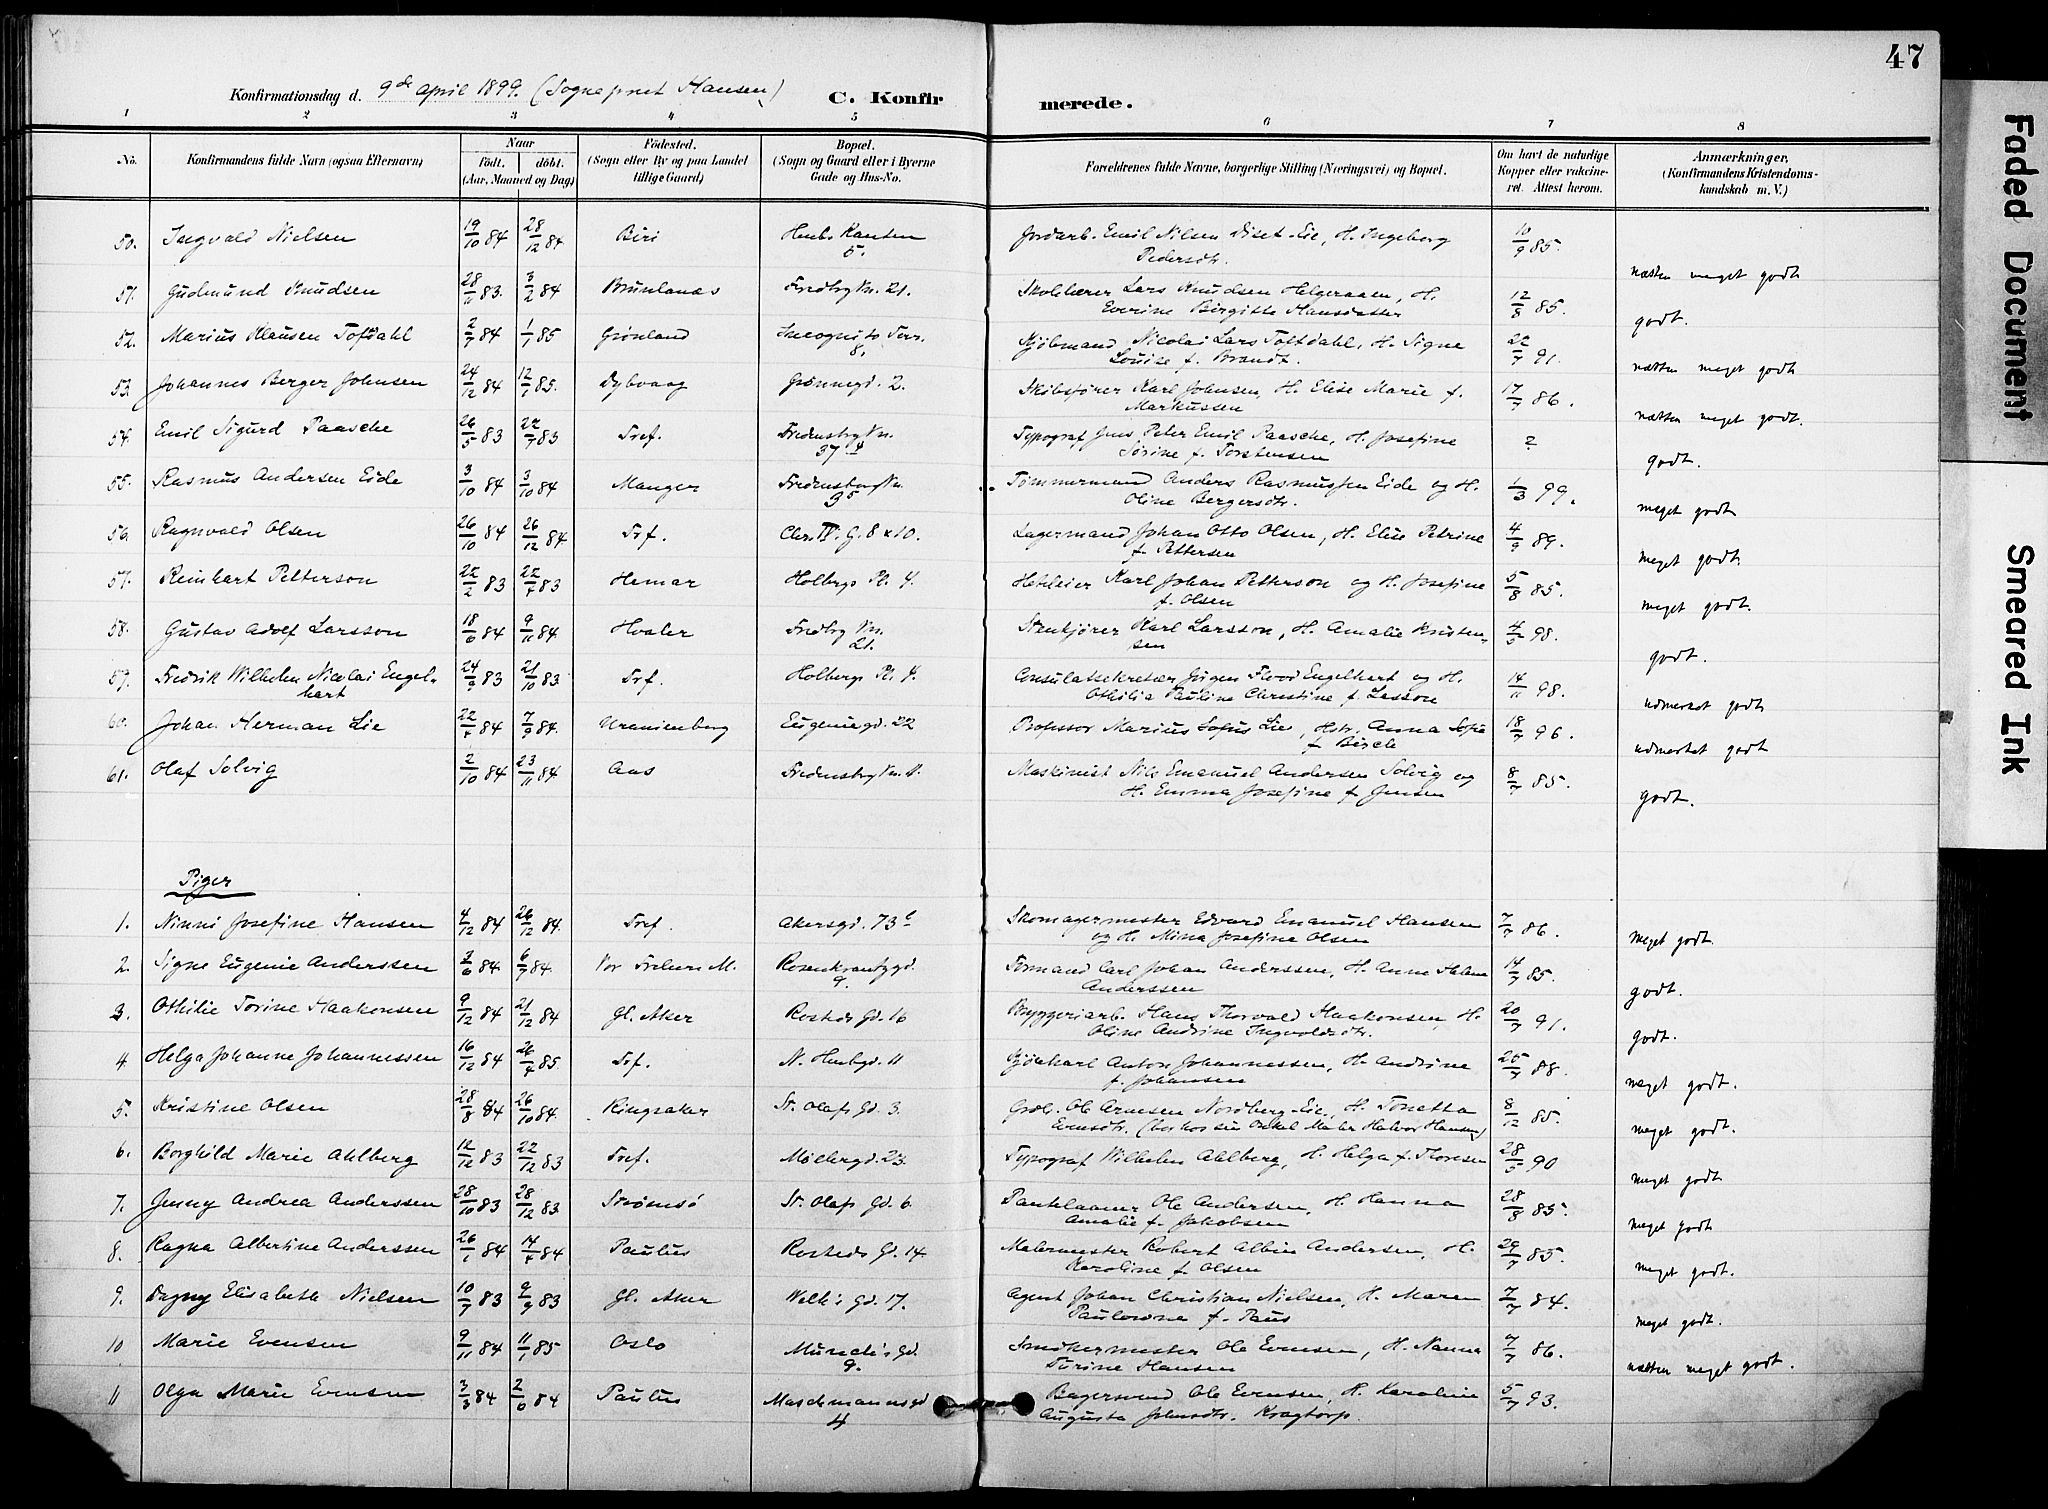 47
Konfirmationsdag d. 9de april 1899. (Sogneprest Hansen)
C. Konfirmerede.
1 2 3 4 5 6 7 8
No. Konfirmandens fulde Navn (ogsaa Efternavn) Naar födt. döbt. (Aar, Maaned og Dag) Födested. (Sogn eller By og paa Landet tillige Gaard) Bopæl. (Sogn og Gaard eller i Byerne Gade og Hus-No. Forældrenes fulde Navne, borgerlige Stilling (Næringsvei) og Bopæl. Om havt de naturlige Kopper eller vakcineret. Attest herom. Anmærkninger, (Konfirmandens Kristendomskundskab m. V.)
50. Ingvald Nielsen 19/10 84 28/12 84 Biri 5. Jordarb. Emil Nilsen Diset-Eie, H. Ingeborg Pedersdtr. 10/9 85. næsten meget godt
51. Gudmund Knudsen 28/11 83. 3/2 84 Brunlanæs Fredbg Vn. 21. Skolelærer Lars Knudsen Helgeraaen, H. Everine Birgitte Hansdatter 12/8 85. godt.
52. Marius Klausen Toftdahl 2/7 84 1/1 85 Grønland Incognito Terr. 8. Kjøbmand Nicolai Lars Toftdahl, H. Signe Louise f. Brandt. 22/7 91. næsten meget godt
53. Johannes Berger Johnsen 24/12 84 12/1 85. Dybvaag Grønnegd. 2. Skibsfører Karl Johnsen, H. Elise Marie f. Markussen 17/7 86. næsten meget godt.
54. Emil Sigurd Paasche 26/5 83 22/7 83 Tref. Fredensbg Vn. 37 Typograf Jens Peter Emil Paasche, H. Josefine Sørine f. Torstensen ? godt.
55. Rasmus Andersen Eide 3/10 84 3/10 84 Manger Fredensborg Vn. 35 Tømmermand Anders Rasmussen Eide og H. Oline Bergersdtr. 1/3 99. meget godt
56. Ragnvald Olsen 26/10 84 26/12 84. Trf. Chr. IV. G. 8 x 10. Lagermand Johan Otto Olsen, H. Elise Petrine f. Pettersen 4/9 89. meget godt
57. Reinhart Petterson 22/2 83 22/4 83 Hamar Holbergs Pl. 4. Karl Johan Petterson og H. Josefine f. Olsen 5/8 85. meget godt.
58. Gustav Adolf Larsson 18/6 84 9/11 84 Hvaler Fredbg Vn. 21. Stenkjører Karl Larsson, H. Amalie Knutensen 4/5 98. godt.
59. Fredrik Wilhelm Nicolai Engelhart 24/9 83 21/10 83 Trf. Holbergs Pl. 4. Consulatsekretær Jørgen Flood Engelhart og H. Othilia Pauline Christine f. Lasson 14/11 98. udmerket godt
60. Johan Herman Lie 22/4 84 7/9 84. Uranienborg Eugeniegd. 22 Professor Marius Sofus Lie, Hstr. Anna Sofie f. Birch 18/7 96. udmerket godt
61. Olaf Solvig 2/10 84 23/11 84 Aas Fredensbg Vn. 11. Maskinist Nils Emanuel Andersen Solvig og H. Emma Josefine f. Jensen 8/7 85. godt.
Piger
1. Ninni Josefine Hansen 4/12 84 26/12 84. Tref. Akersgd. 73c Skomagermester Edvard Emanuel Hansen og H. Mina Josefine Olsen 7/7 86. Meget godt.
2. Signe Eugenie Anderssen 2/6 84. 6/7 84. Vor Frelsers M. Rosenkrantzgd. 9. Formand Carl Johan Anderssen, H. Anne Helene Anderssen 14/7 85. godt.
3. Othilie Torine Haakonsen 9/12 84 21/12 84 Gl. Aker Rosteds Gd. 16 Bryggeriarb. Hans Thorvald Haakonsen, H. Oline Andrine Ingvoldsdtr. 20/7 91. godt.
4. Helga Johanne Johannessen 16/12 84 26/4 85. Trf. N. Hmbgd. 11 Anton Johannessen, H. Andrine f. Johansen 25/7 88. meget godt.
5. Kristine Olsen 28/8 84 26/10 84. Ringsaker St. Olafs Gd. 3. Ole Arnesen Nordberg-Eie, H. Tonetta Evensdtr. (bor hos sin Onkel Maler Halvor Hansen) 8/12 85. meget godt.
6. Borghild Marie Ahlberg 12/12 83 22/12 83 Tref. Møllergd. 23. Typograf Wilhelm Ahlberg, H. Helga f. Thoresen 28/5 90 meget godt
7. Jenny Andrea Anderssen 28/10 83 28/12 83 Strømsø St. Olafs Gd. 6. Pantelaaner Ole Andersen, H. Hanna Amalie f. Jakobsen 28/8 85. meget godt
8. Ragna Albertine Anderssen 26/1 84 14/4 84 Paulus Rosteds Gd. 14 Malermester Robert Albin Andersen, H. Karoline f. Olsen 29/7 85. meget godt.
9. Dagny Elisabeth Nielsen 10/7 83 9/9 83 Gl. Aker Welh's Gd. 17. Agent Johan Christian Nielsen, H. Maren Paulowne f. Paus 7/7 84. meget godt.
10 Marie Evensen 9/11 84 11/1 85 Oslo Munch's Gd. 9. Smøkermester Ole Evensen, H. Nanna Turine Hansen 7/7 86. næsten meget godt.
11 Olga Marie Evensen 3/3 84 2/6 84 Paulus Maschmannsgd 4 Bagersvend Ole Evensen, H. Karoline Augusta Johnsdtr. Kragtorp. 5/7 93.
Faded Document
Smeared Ink